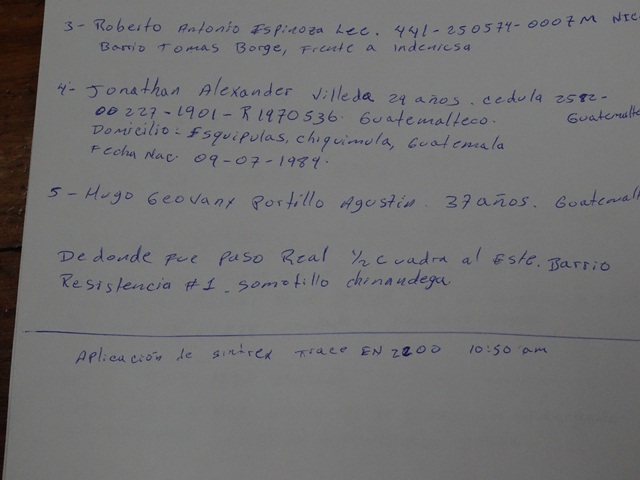 3- Roberto Antonio Espinoza Lec. 441-250574-0007M NIC
Barrio Tomas Borge, Frente a Indenicsa
4- Jonathan Alexander Villeda 29 años. cedula 2582-
00227-1901-R1970536. Guatemalteco. Guatemalte
Domicilio: Esquipulas, chiquimula, Guatemala
Fecha Nac. 09-07-1984.
5- Hugo Geovany Portillo Agustin. 37 años. Guatemalt
De donde fue Paso Real 1/2 cuadra al Este. Barrio
Resistencia #1. Somotillo chinandega.
Aplicación de sintrex Trace EN 2200 10:50 am